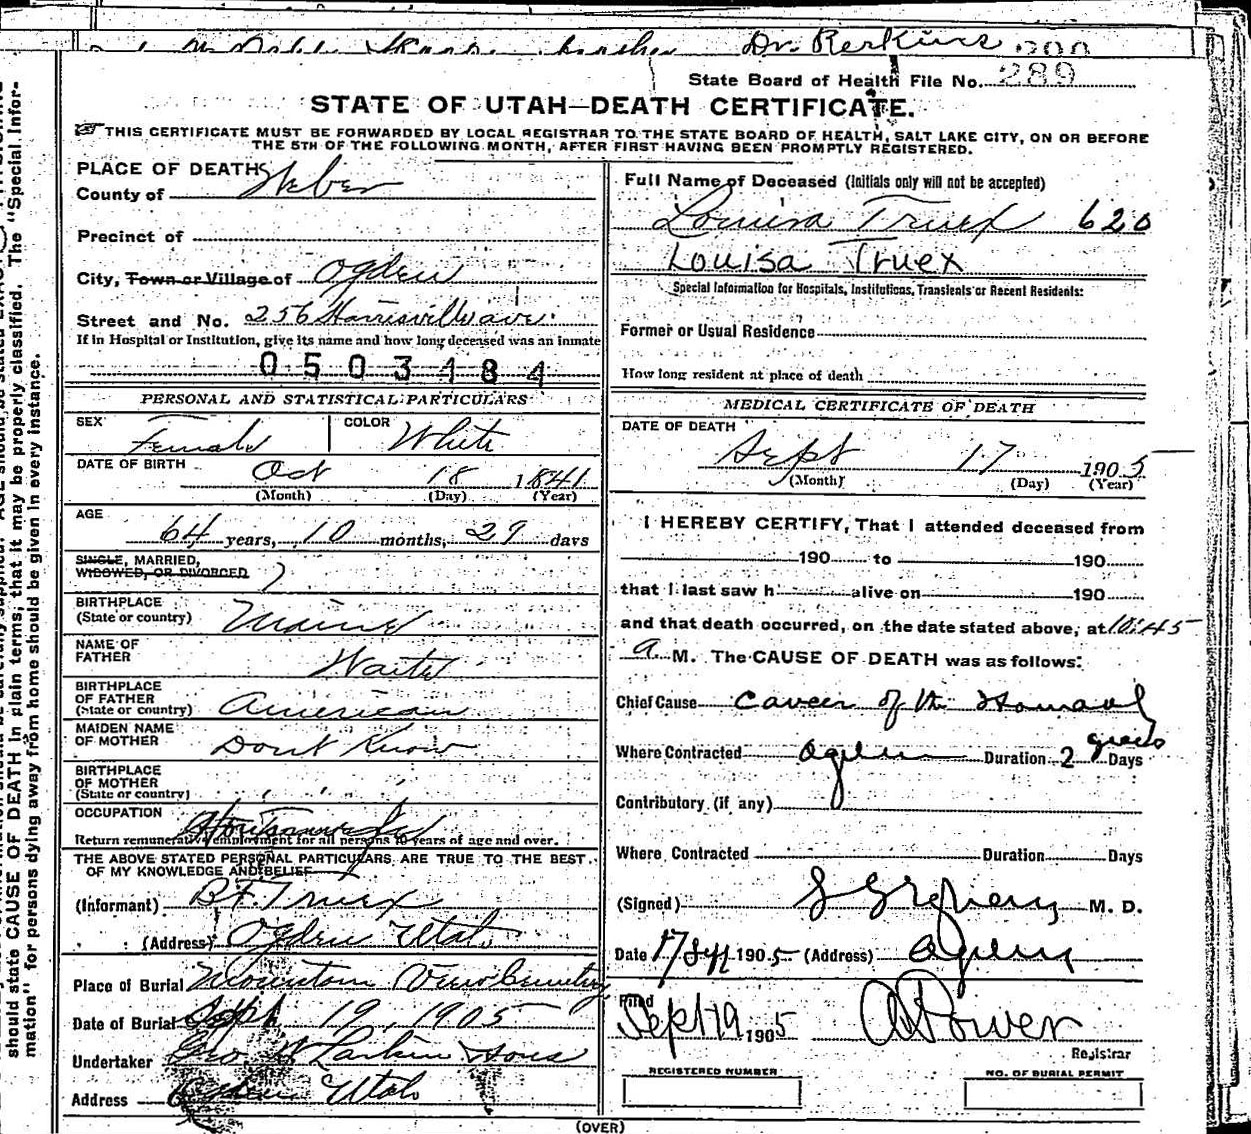 Dr. Perkins
State Board of Health File No. 289
STATE OF UTAH—DEATH CERTIFICATE.
THIS CERTIFICATE MUST BE FORWARDED BY LOCAL REGISTRAR TO THE STATE BOARD OF HEALTH, SALT LAKE CITY, ON OR BEFORE
THE 5TH OF THE FOLLOWING MONTH, AFTER FIRST HAVING BEEN PROMPTLY REGISTERED.
PLACE OF DEATH
County of Weber
Precinct of
City, Town or Village of Ogden
Street and No. 256 Harrisville ave.
If in Hospital or Institution, give its name and how long deceased was an inmate
0503484
PERSONAL AND STATISTICAL PARTICULARS
SEX Female COLOR White
DATE OF BIRTH Oct 18 1841
(Month) (Day) (Year)
AGE
64 years, 10 months, 29 days
SINGLE, MARRIED,
WIDOWED, OR DIVORCED
BIRTHPLACE
(State or country) Maine
NAME OF
FATHER Waite
BIRTHPLACE
OF FATHER
(State or country) American
MAIDEN NAME
OF MOTHER Dont Know
BIRTHPLACE
OF MOTHER
(State or country)
OCCUPATION Housewife
Return remunerative employment for all persons 10 years of age and over.
THE ABOVE STATED PERSONAL PARTICULARS ARE TRUE TO THE BEST
OF MY KNOWLEDGE AND BELIEF
(Informant) B.F. Truex
(Address) Ogden Utah
Place of Burial Mountain View Cemetery
Date of Burial Sept 19, 1905
Undertaker Geo W Larkin & Sons
Address Ogden Utah
Full Name of Deceased (Initials only will not be accepted)
Louisa Truex 620
Louisa Truex
Special Information for Hospitals, Institutions, Transients or Recent Residents:
Former or Usual Residence
How long resident at place of death
MEDICAL CERTIFICATE OF DEATH
DATE OF DEATH
Sept 17 1905
(Month) (Day) (Year)
I HEREBY CERTIFY, That I attended deceased from
190 to 190
that I last saw h alive on 190
and that death occurred, on the date stated above, at 10:45
a. M. The CAUSE OF DEATH was as follows:
Chief Cause Cancer of the Stomach
Where Contracted Ogden Duration 2 years Days
Contributory (if any)
Where Contracted Duration Days
(Signed) M. D.
Date 17 Sept 1905 (Address) Ogden
Filed
Sept 19 1905 Power
Registrar
REGISTERED NUMBER
NO. OF BURIAL PERMIT
(OVER)
should state CAUSE OF DEATH in plain terms, that it may be properly classified. The "Special Infor-
mation" for persons dying away from home should be given in every instance.